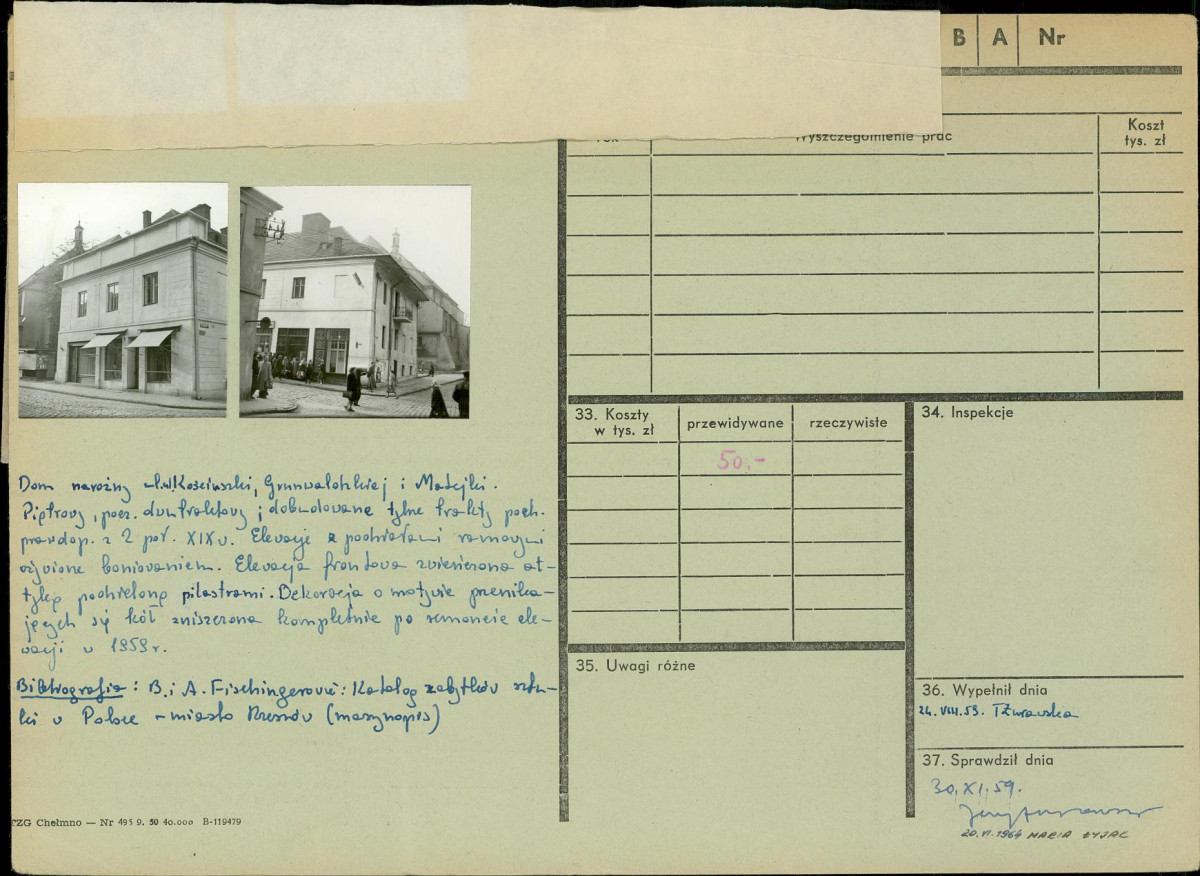 B A Nr
Wyszczególnienie prac
Koszt
tys. zł
33. Koszty
w tys. zł
przewidywane
rzeczywiste
50,-
34. Inspekcje
Dom narożny ul. Kościuszki, Grunwaldzkiej i Matejki.
Piętrowy, dwutraktowy; dobudowane tylne trakty poch.
prawdop. z 2 poł. XIX w. Elewacje z podziałami ramowymi
ożywione boniowaniem. Elewacja frontowa zwieńczona at-
tyką podzieloną pilastrami. Dekoracja o motywie przenika-
jących się kół zniszczona kompletnie po remoncie ele-
wacji w 1959 r.
Bibliografia: B. i A. Fischingerowie: Katalog zabytków sztu-
ki w Polsce - miasto Rzeszów (maszynopis)
35. Uwagi różne
36. Wypełnił dnia
24. VIII. 59.
37. Sprawdził dnia
30. XI. 59.
20. VI. 1964 MARIA ŁYJAK
TZG Chełmno — Nr 495 9. 50 40.000 B-119479